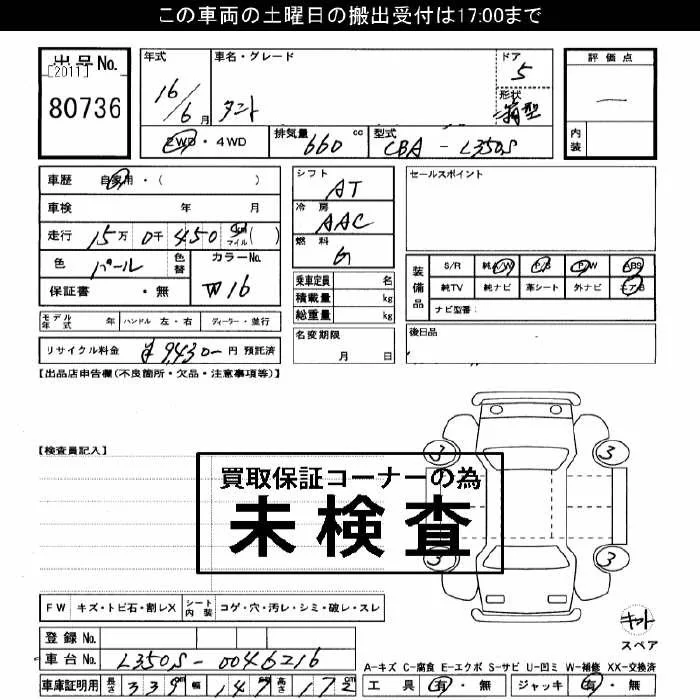 この車両の土曜日の搬出受付は17:00まで
出品No.
[2011]
80736
年式
16/6月
車名・グレード
タント
ドア
5
形状
箱型
評価点
―
内装
2WD・4WD
排気量 660 cc
型式 CBA - L350S
車歴 自家用・( )
車検 年 月
走行 15万 0千 450 km マイル ( )
色 パール
色替
カラーNo.
W16
保証書 ・無
シフト
AT
冷房
AAC
燃料
G
乗車定員 名
積載量 kg
総重量 kg
セールスポイント
装備品
S/R 純A/W P/S P/W ABS
純TV 純ナビ 革シート 外ナビ エアB
ナビ型番:
モデル年式 年 ハンドル 左・右 ディーラー・並行
名変期限
月 日
後日品
リサイクル料金 ¥9,430- 円 預託済
【出品店申告欄(不良箇所・欠品・注意事項等)】
【検査員記入】
3 3
買取保証コーナーの為
未検査
3 3
FW キズ・トビ石・割レX シート内装 コゲ・穴・汚レ・シミ・破レ・スレ
キット
スペア
登録No.
車台No. L350S-0046216
A-キズ C-腐食 E-エクボ S-サビ U-凹ミ W-補修 XX-交換済
車庫証明用 長さ 339cm 幅 147cm 高さ 172cm
工具 有・無 ジャッキ 有・無